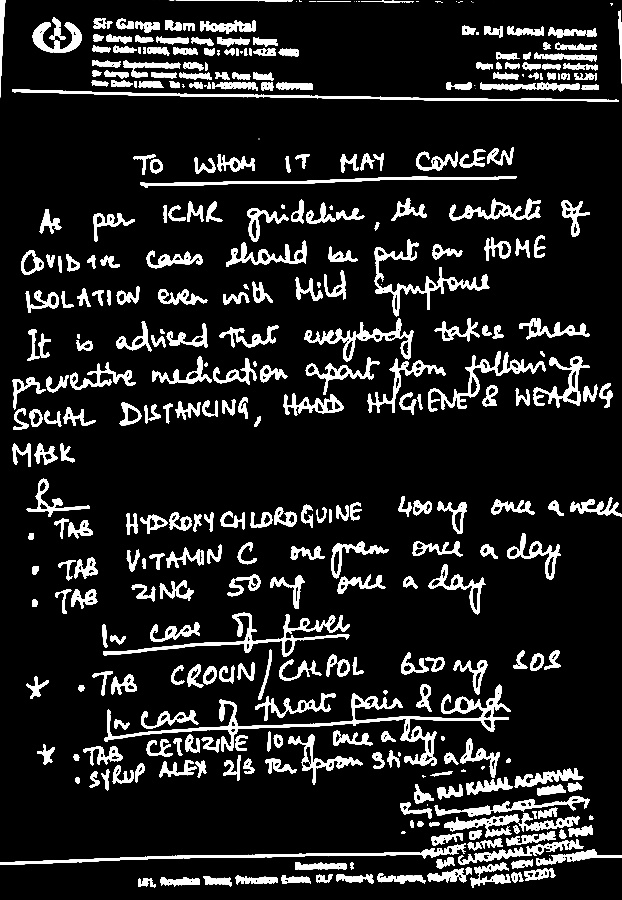 Sir Ganga Ram Hospital
Sir Ganga Ram Hospital Marg, Rajinder Nagar,
New Delhi-110060, INDIA Tel : +91-11-4225 4000
Medical Superintendent (Offg.)
New Delhi-110060.
Dr. Raj Kamal Agarwal
Sr. Consultant
Deptt. of Anaesthesiology
Pain & Peri Operative Medicine
Mobile : +91 98101 52201
TO WHOM IT MAY CONCERN
As per ICMR guideline, the contacts of
COVID +ve cases should be put on HOME
ISOLATION even with Mild Symptoms
It is advised that everybody takes these
preventive medication apart from following
SOCIAL DISTANCING, HAND HYGIENE & WEARING
MASK
Rx
• TAB HYDROXYCHLOROQUINE 400mg once a week
• TAB VITAMIN C one gram once a day
• TAB ZINC 50 mg once a day
In case of fever
* • TAB CROCIN/CALPOL 650 mg SOS
In case of throat pain & cough
* • TAB CETRIZINE 10mg once a day.
• SYRUP ALEX 2/3 Tea Spoon 3 times a day.
Dr. RAJ KAMAL AGARWAL
DEPTT OF ANAESTHESIOLOGY
PERIOPERATIVE MEDICINE & PAIN
SIR GANGARAM HOSPITAL
PH-9810152201
Residence :
Princeton Estate, DLF Phase-V, Gurugram,